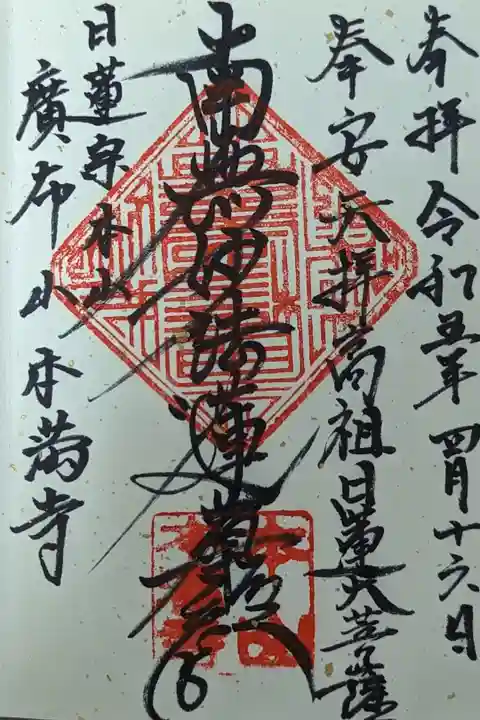 奉拝 令和五年 四月十六日
奉安 拝 高祖日蓮大菩薩
南無妙法蓮華経
日蓮宗本山
廣布山 本満寺